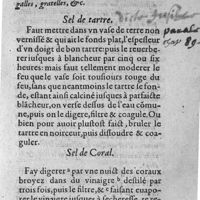 galles, gratelles, &c.
Sel de tartre.
Faut mettre dans vn vase de terre non
vernissé & qui ait le fonds plat, l'espesseur
d'vn doigt de bon tartre: puis le reuerbe-
rer iusques à blancheur par cinq ou six
heures: mais faut tellement moderer le
feu que le vase soit tousiours rouge du
feu, sans que neantmoins le tartre se fon-
de, estant ainsi calciné iusques à parfaicte
blācheur, on verse dessus de l'eau cōmu-
ne, puis on la digere, filtre & coagule. Ou
bien pour auoir plustost faict, bruler le
tartre en noirceur, puis dissoudre & coa-
guler.
Sel de Coral.
Fay digerer a par vne nuict des coraux
broyez dans du vinaigre b destilé par
trois fois, puis le filtre, & c faisant euapo-
rer le vinaigre iusques à secheresse, il re-